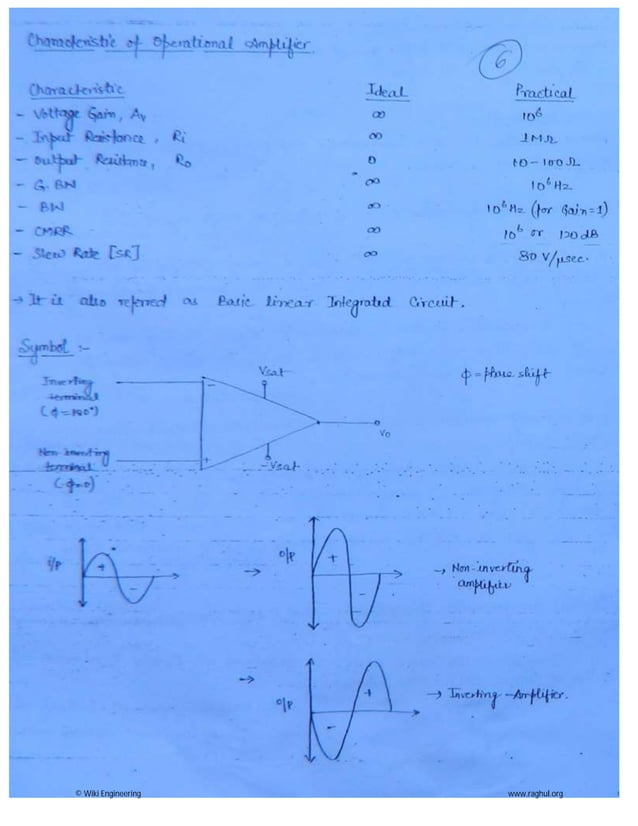 Characteristic of Operational Amplifier.
6
Characteristic Ideal Practical
- Voltage Gain, Av ∞ 10⁶
- Input Resistance, Ri ∞ 1MΩ
- Output Resistance, Ro 0 10-100Ω
- G.BW ∞ 10⁶Hz
- BW ∞ 10⁶Hz (for Gain=1)
- CMRR ∞ 10⁶ or 120dB
- Slew Rate [SR] ∞ 80 V/μsec.
→ It is also referred as Basic linear Integrated Circuit.
Symbol :-
Vsat
ϕ = phase shift
Inverting
terminal
(ϕ=180°)
-
Vo
Non-inverting
terminal
(ϕ=0)
+
-Vsat
i/p
+
-
→
o/p
+
-
→ Non-inverting
amplifier
→
o/p
+
-
→ Inverting-Amplifier.
© Wiki Engineering www.raghul.org